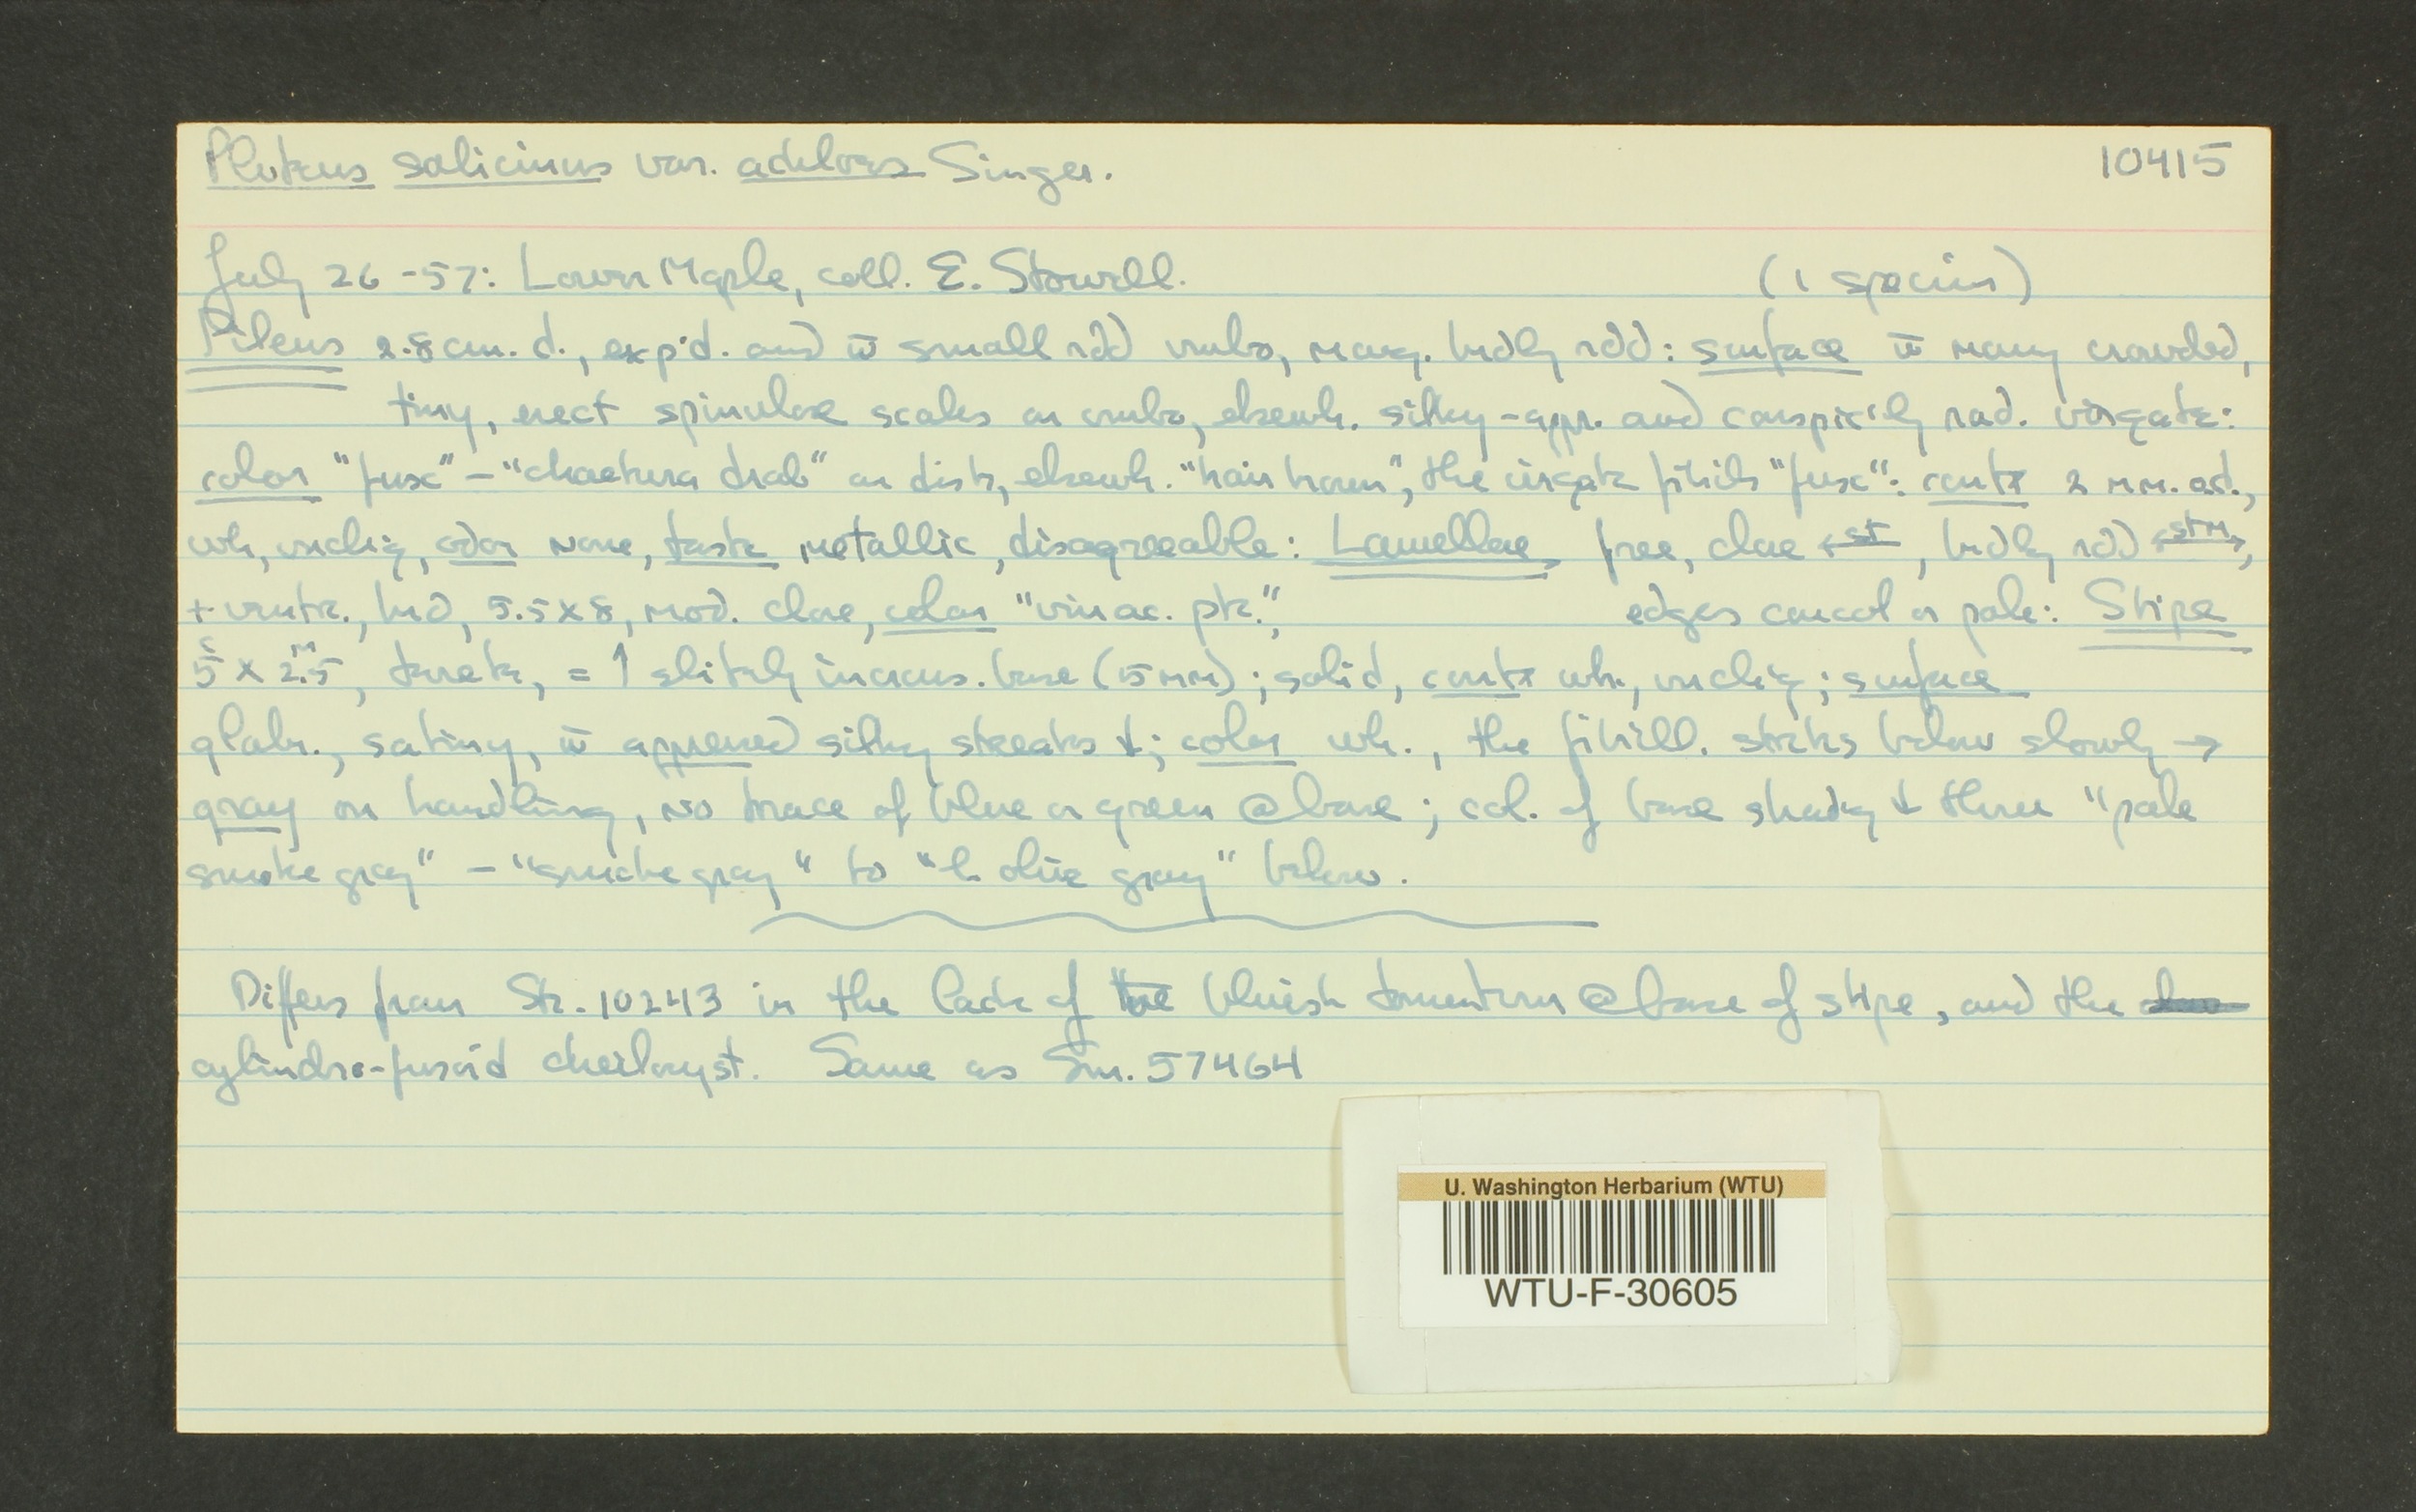 Pluteus salicinus var. achloes Singer. 10415
July 26 -57: Lower Maple, coll. E. Stowell. (1 specim)
Pileus 2.8 cm. d., exp'd. and w̄ small rdd umbo, marg. brdly rdd: surface w̄ many crowded,
tiny, erect spinulose scales on umbo, elsewh. silky-appr. and conspic'ly rad. virgate:
color "fusc" - "chaetura drab" on disk, elsewh. "hair brown", the virgate fibrils "fusc": contx 2 mm. ad.,
wh, unchig, odor none, taste metallic, disagreeable: Lamellae free, close ←st, brdly rdd ←stm→,
+ ventr., brd, 5.5 x 8, mod. close, color "vinac. pk.", edges concol or pale: Stipe
5 c x 2.5 m, terete, = ↑ slitely increas. base (5 mm); solid, contx wh., unchig; surface
glabr., satiny, w̄ appressed silky streaks ↓; color wh., the fibrill. strks below slowly →
gray on handling, no trace of blue or green @ base; col. of base shadg ↓ thru "pale
smoke gray" - "smoke gray" to "l. olive gray" below.
Differs from Str. 10243 in the lack of the bluish tomentum @ base of stipe, and the
cylindro-fusoid cheilocyst. Same as Sm. 57464
U. Washington Herbarium (WTU)
WTU-F-30605